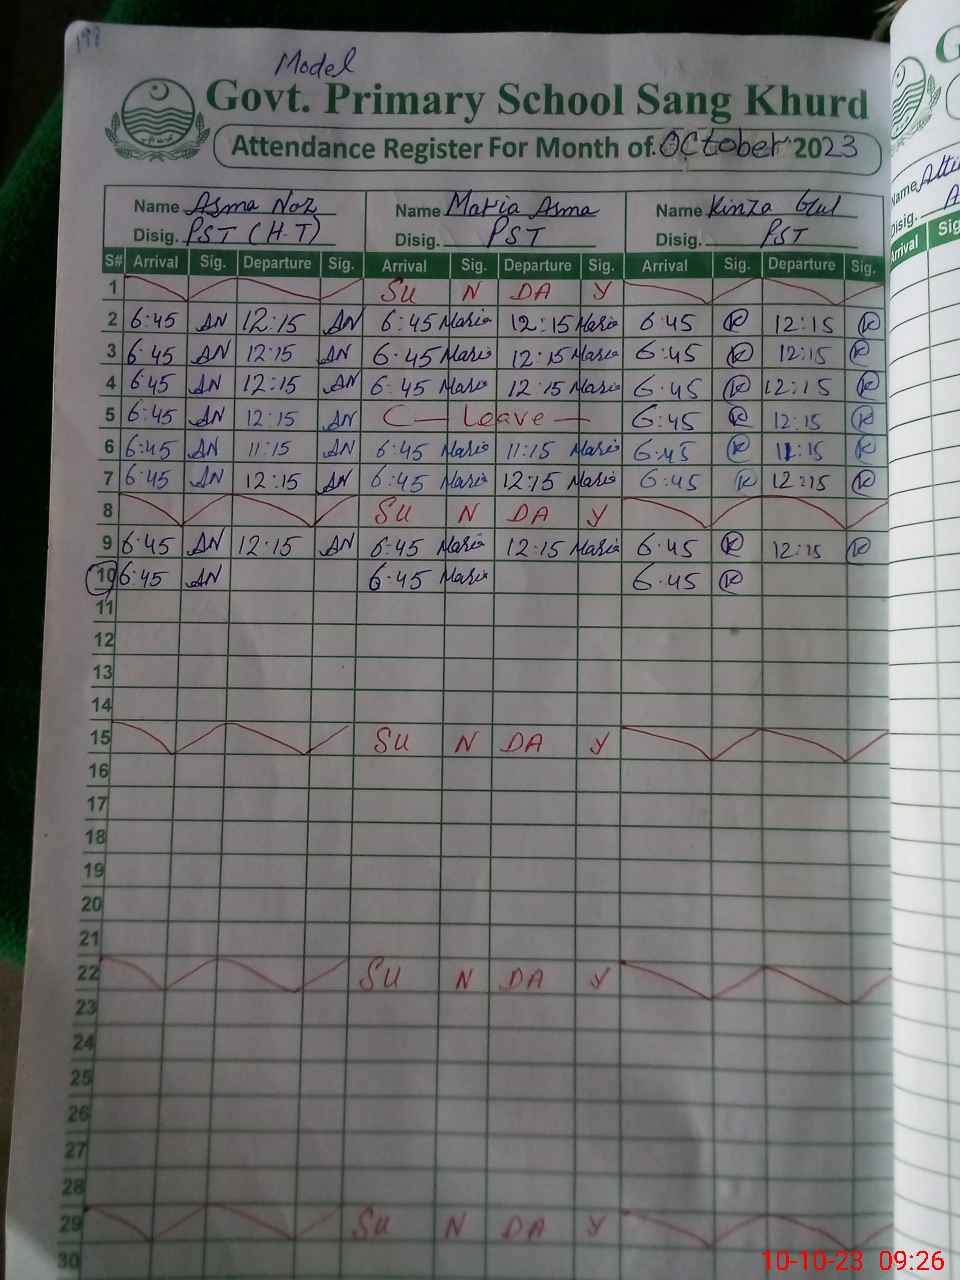 198
Model
Govt. Primary School Sang Khurd
Attendance Register For Month of. October 2023
Name Asma Noz Name Maria Asma Name Kinza Gul
Disig. PST (H.T) Disig. PST Disig. PST
S# Arrival Sig. Departure Sig. Arrival Sig. Departure Sig. Arrival Sig. Departure Sig.
1 SU N DA Y
2 6:45 AN 12:15 AN 6:45 Maria 12:15 Maria 6:45 K 12:15 K
3 6:45 AN 12:15 AN 6.45 Maria 12:15 Maria 6:45 K 12:15 K
4 6:45 AN 12:15 AN 6:45 Maria 12:15 Maria 6:45 K 12:15 K
5 6:45 AN 12:15 AN C — Leave — 6:45 K 12:15 K
6 6:45 AN 11:15 AN 6:45 Maria 11:15 Maria 6:45 K 11:15 K
7 6:45 AN 12:15 AN 6:45 Maria 12:15 Maria 6:45 K 12:15 K
8 SU N DA Y
9 6:45 AN 12:15 AN 6:45 Maria 12:15 Maria 6:45 K 12:15 K
10 6:45 AN 6.45 Maria 6.45 K
11
12
13
14
15 SU N DA Y
16
17
18
19
20
21
22 SU N DA Y
23
24
25
26
27
28
29 SU N DA Y
30
G
Name
Disig.
Arrival Sig
10-10-23 09:26